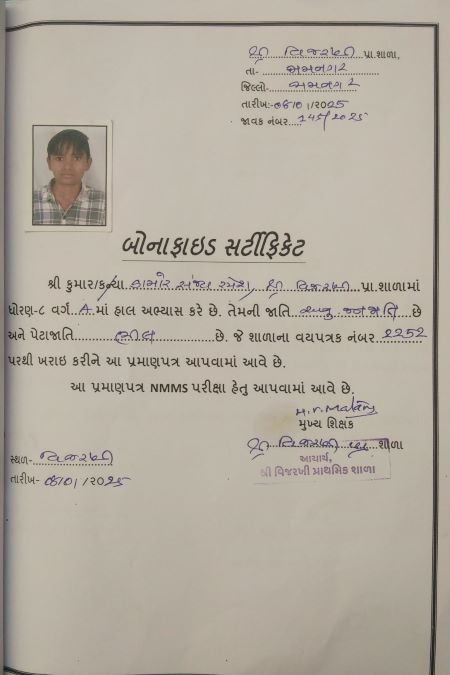 શ્રી વિજરખી પ્રા.શાળા,
તા- જામનગર
જિલ્લો- જામનગર
તારીખ:-08/01/2025
જાવક નંબર....145/2025
બોનાફાઇડ સર્ટીફિકેટ
શ્રી કુમાર/કન્યા ડામોર સંજય રમેશ શ્રી વિજરખી પ્રા.શાળામાં
ધોરણ-૮ વર્ગ A માં હાલ અભ્યાસ કરે છે. તેમની જાતિ અનુ. જનજાતિ છે
અને પેટાજાતિ ભીલ છે. જે શાળાના વયપત્રક નંબર 2252
પરથી ખરાઇ કરીને આ પ્રમાણપત્ર આપવામાં આવે છે.
આ પ્રમાણપત્ર NMMS પરીક્ષા હેતુ આપવામાં આવે છે.
મુખ્ય શિક્ષક
શ્રી વિજરખી પ્રા. શાળા
આચાર્ય,
શ્રી વિજરખી પ્રાથમિક શાળા
સ્થળ- વિજરખી
તારીખ- 08/01/2025